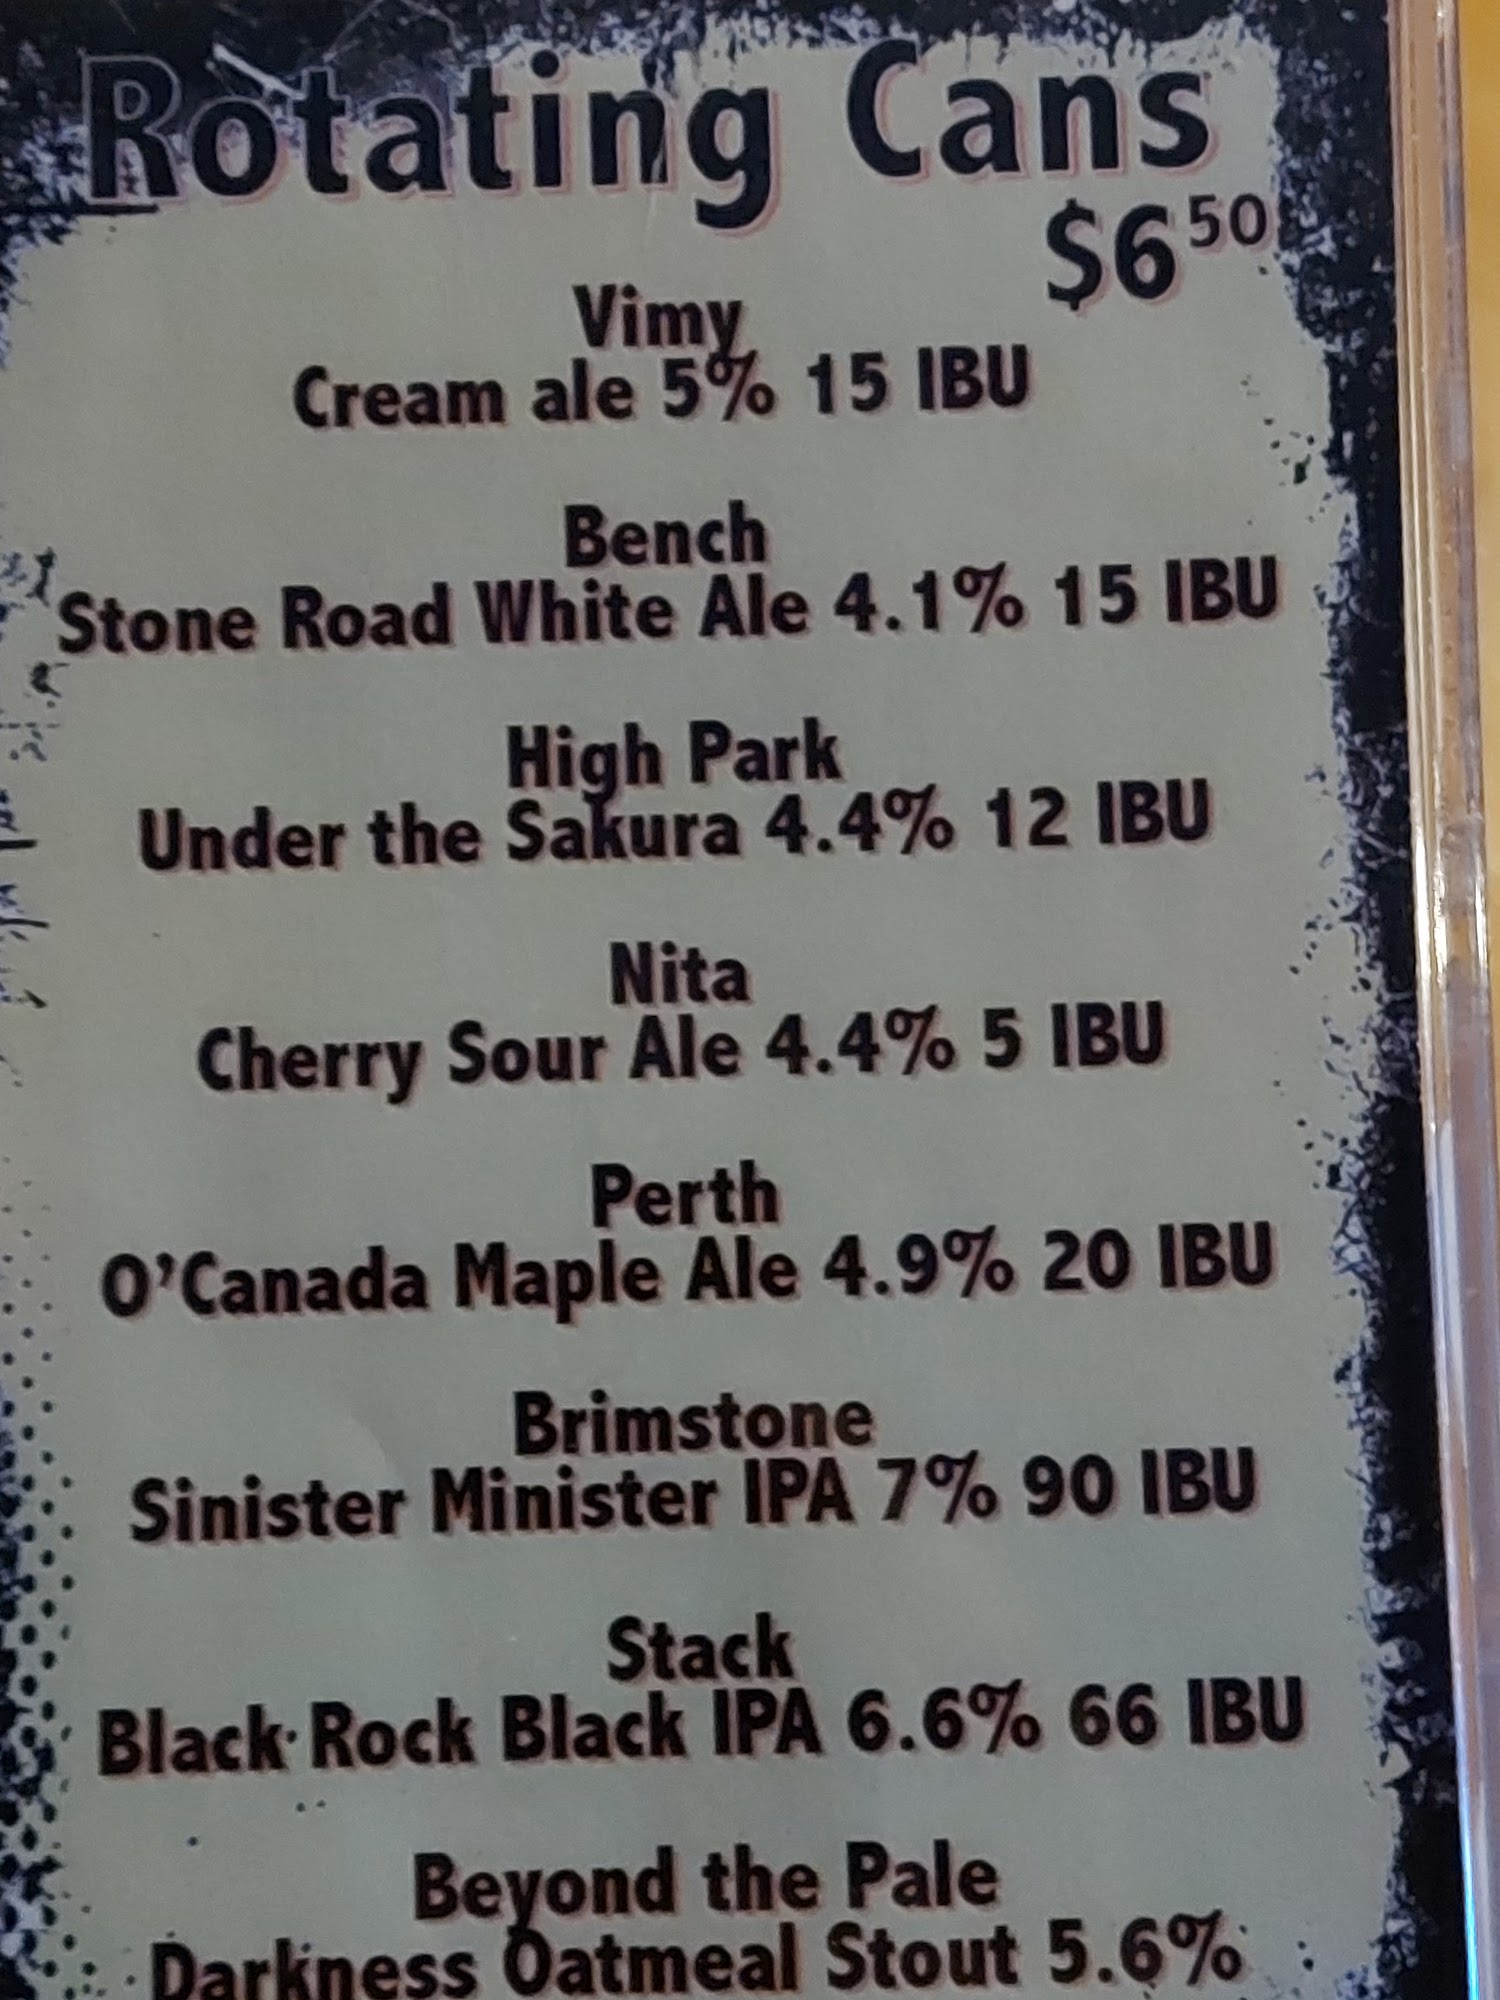 Rotating Cans
$6 50
Vimy
Cream ale 5% 15 IBU
Bench
Stone Road White Ale 4.1% 15 IBU
High Park
Under the Sakura 4.4% 12 IBU
Nita
Cherry Sour Ale 4.4% 5 IBU
Perth
O'Canada Maple Ale 4.9% 20 IBU
Brimstone
Sinister Minister IPA 7% 90 IBU
Stack
Black Rock Black IPA 6.6% 66 IBU
Beyond the Pale
Darkness Oatmeal Stout 5.6%